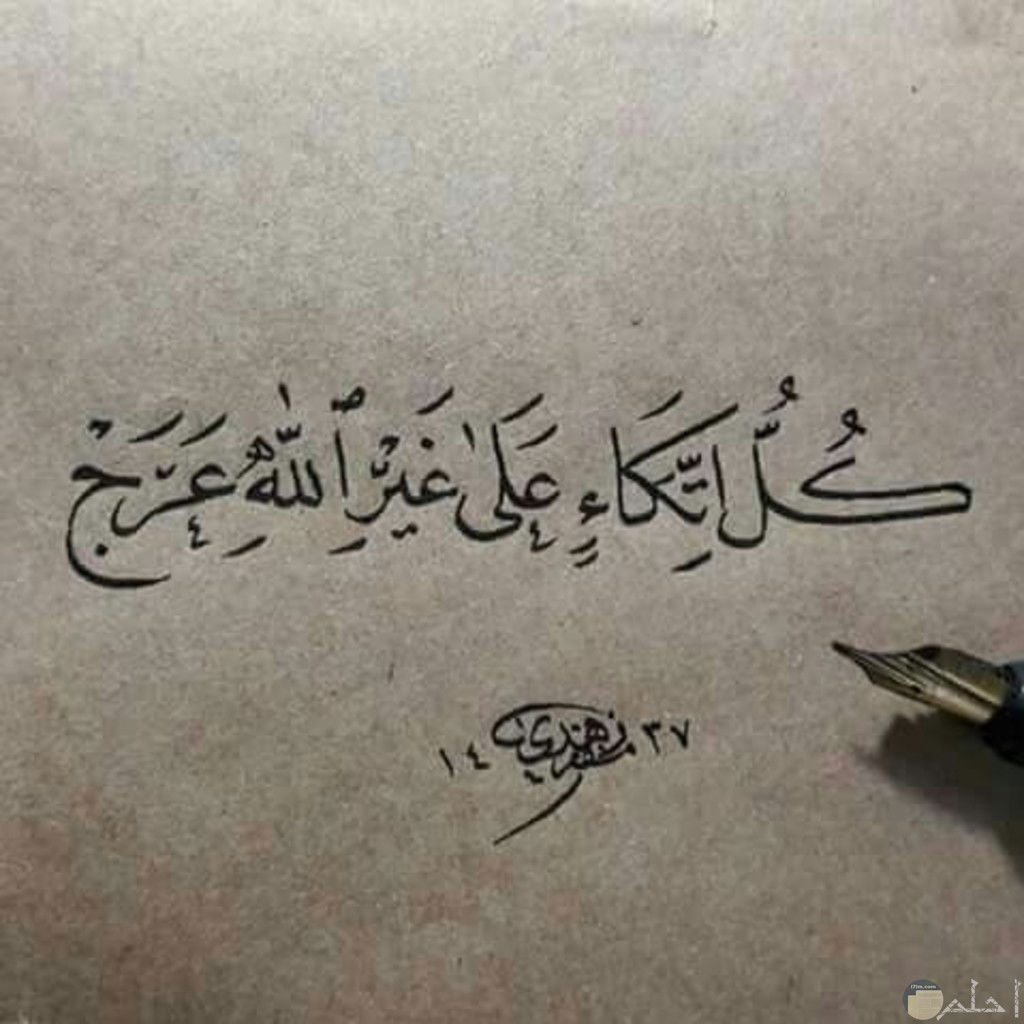 كُلُّ اتِّكَاءٍ عَلَىٰ غَيْرِ ٱللّٰهِ عَرَجْ
١٤ ٣٧
احلم